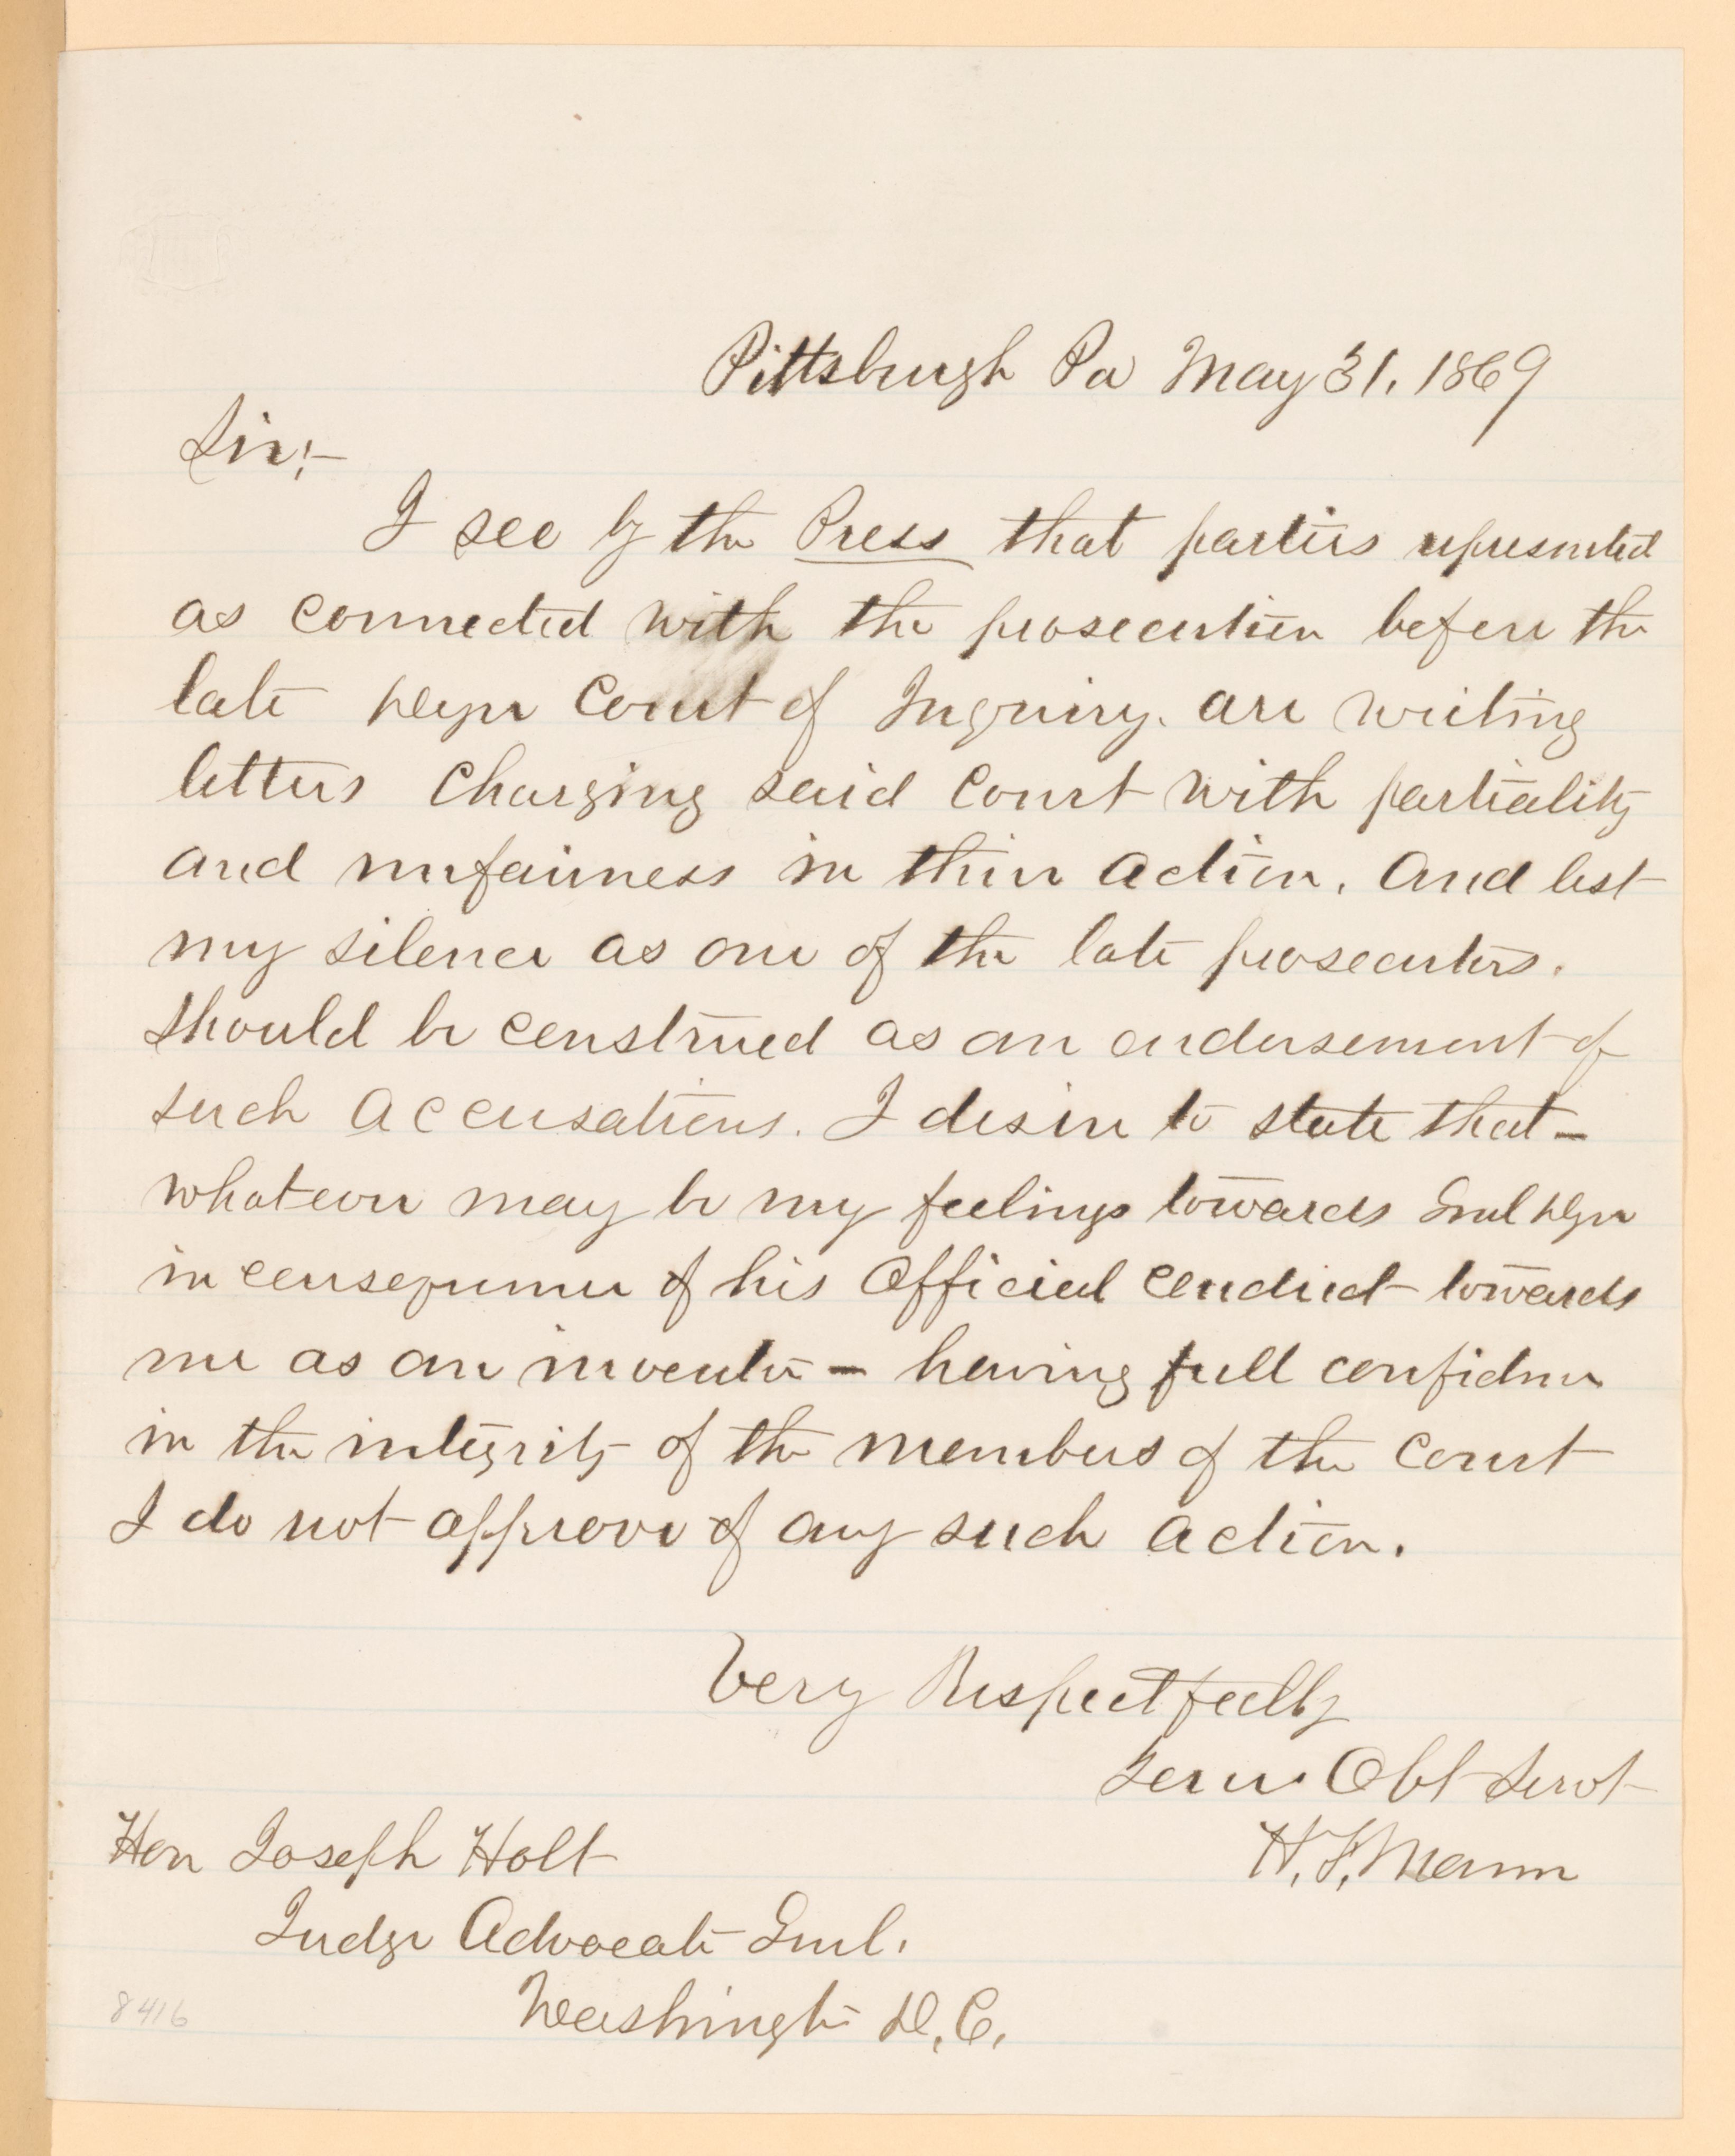 Pittsburgh Pa May 31, 1869
Sir:-
I see by the Press that parties represented
as connected with the prosecution before the
late Dyer Court of Inquiry. are writing
letters charging said Court with partiality
and unfairness in their action. And lest
my silence as one of the late prosecutors.
should be construed as an endorsement of
such accusations. I desire to state that -
whatever may be my feelings towards Genl Dyer
in consequence of his Official conduct towards
me as an inventor - having full confidence
in the integrity of the members of the Court
I do not approve of any such action.
Very Respectfully
Your Obt Servt
H. F. Mann
Hon Joseph Holt
Judge Advocate Genl.
Washington D. C.
8416